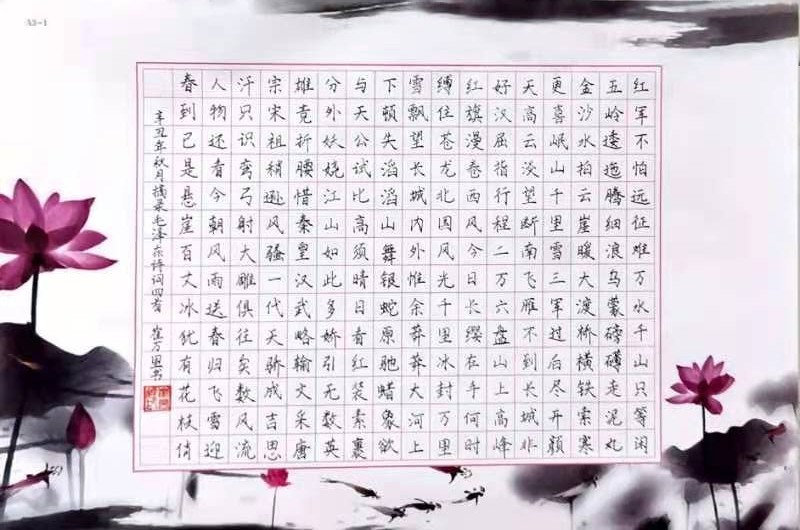 A3-1
红军不怕远征难万水千山只等闲
五岭逶迤腾细浪乌蒙磅礴走泥丸
金沙水拍云崖暖大渡桥横铁索寒
更喜岷山千里雪三军过后尽开颜
天高云淡望断南飞雁不到长城非
好汉屈指行程二万六盘山上高峰
红旗漫卷西风今日长缨在手何时
缚住苍龙北国风光千里冰封万里
雪飘望长城内外惟余莽莽大河上
下顿失滔滔山舞银蛇原驰蜡象欲
与天公试比高须晴日看红装素裹
分外妖娆江山如此多娇引无数英
雄竞折腰惜秦皇汉武略输文采唐
宗宋祖稍逊风骚一代天骄成吉思
汗只识弯弓射大雕俱往矣数风流
人物还看今朝风雨送春归飞雪迎
春到已是悬崖百丈冰犹有花枝俏
辛丑年秋月摘录毛泽东诗词四首 崔万书